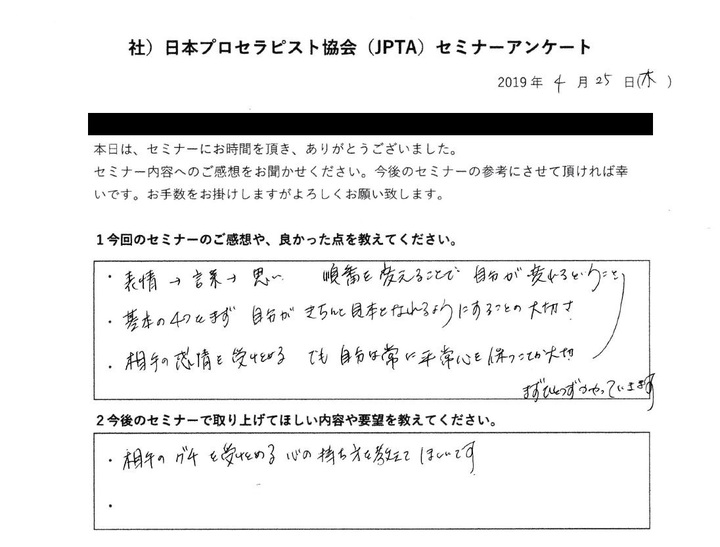 社）日本プロセラピスト協会（JPTA）セミナーアンケート
2019 年 4 月 25 日(木)
本日は、セミナーにお時間を頂き、ありがとうございました。
セミナー内容へのご感想をお聞かせください。今後のセミナーの参考にさせて頂ければ幸
いです。お手数をお掛けしますがよろしくお願い致します。
１今回のセミナーのご感想や、良かった点を教えてください。
・表情→言葉→思い 順番を変えることで 自分が変れるということ
・基本の4つをまず 自分が きちんと見本となれるようにすることの大切さ
・相手の感情を受けとめる でも自分は常に平常心を保つことが大切
まずひとつずつやっていきます
２今後のセミナーで取り上げてほしい内容や要望を教えてください。
・相手のグチを受けとめる心の持ち方を教えてほしいです
・